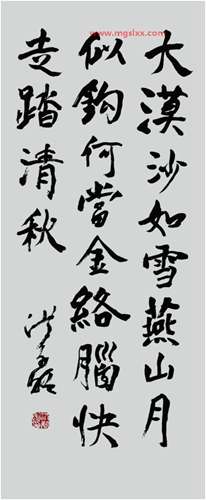 www.mgslxx.com
大漠沙如雪燕山月
似鉤何當金絡腦快
走踏清秋